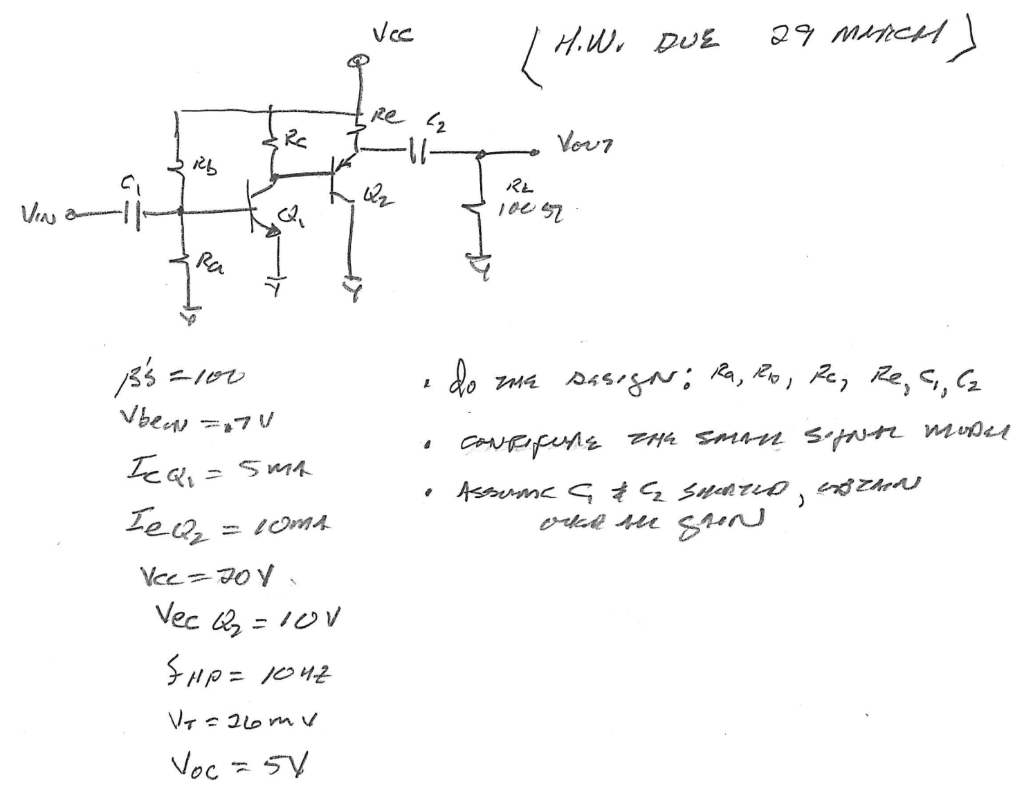 Vcc
( H.W. DUE 29 MARCH )
Re
C2
Vout
Rc
Rb
C1
VIN
Q1
Q2
RL
Ra
β's = 100
Vbeon = .7V
IcQ1 = 5mA
IeQ2 = 10mA
Vcc = 20V
Vec Q2 = 10V
fHP = 10HZ
VT = 26mV
Voc = 5V
• do THE DESIGN: Ra, Rb, Rc, Re, C1, C2
• CONFIGURE THE SMALL SIGNAL MODEL
• ASSUME C1 & C2 SHORTED, OBTAIN
OVER ALL GAIN